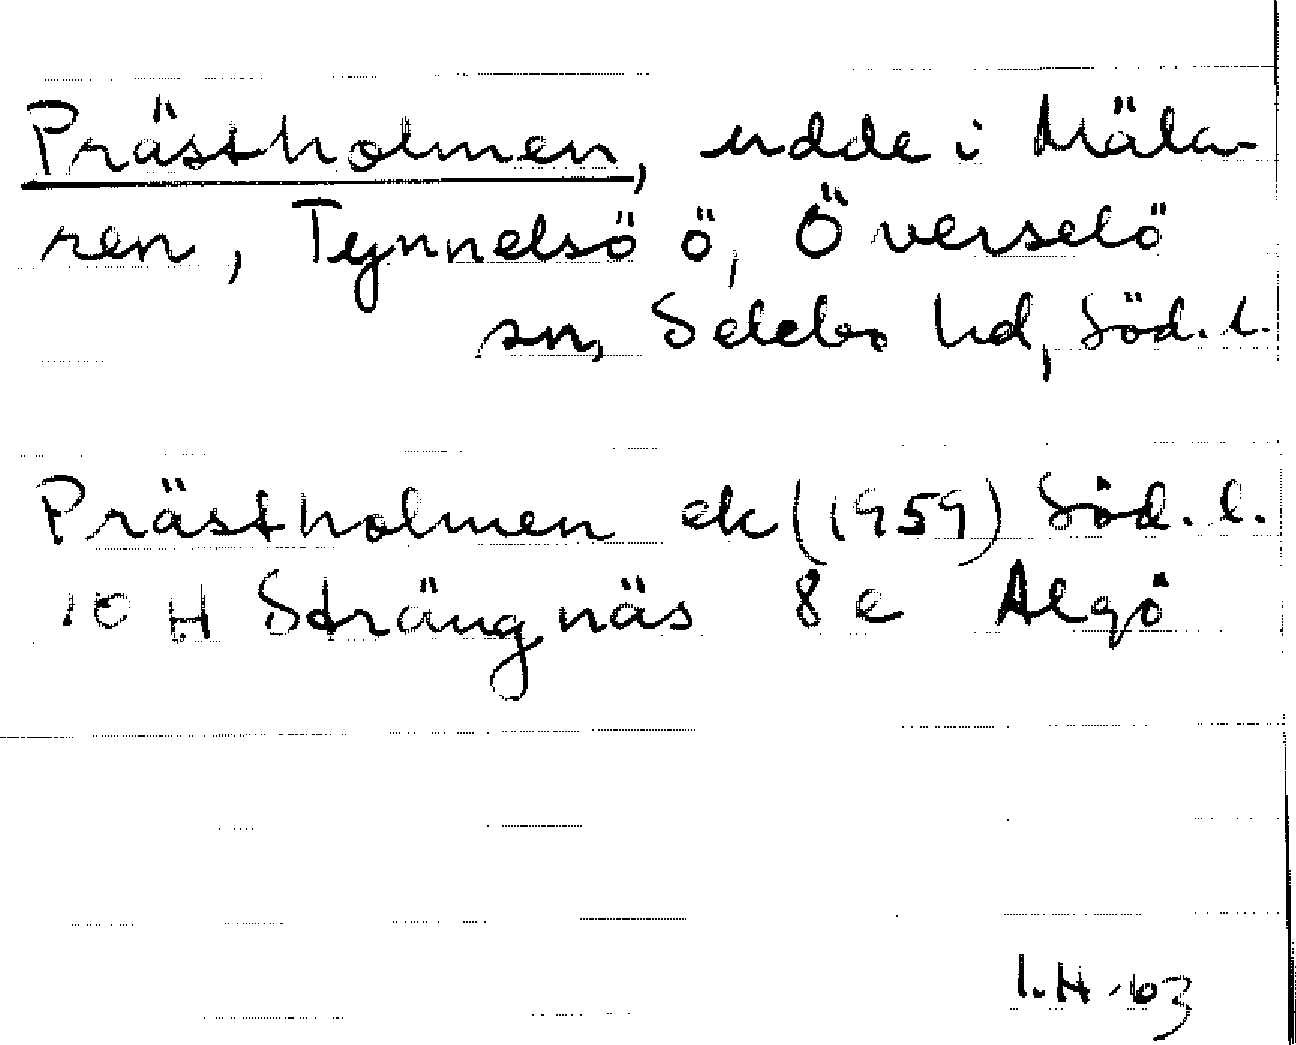 Prästholmen, udde i Mäla-
ren, Tynnelsö ö, Överselö
sn, Selebo hd, Söd. l.
Prästholmen ek (1959) Söd. l.
10 H Strängnäs 8 e Algö
I.H. 63